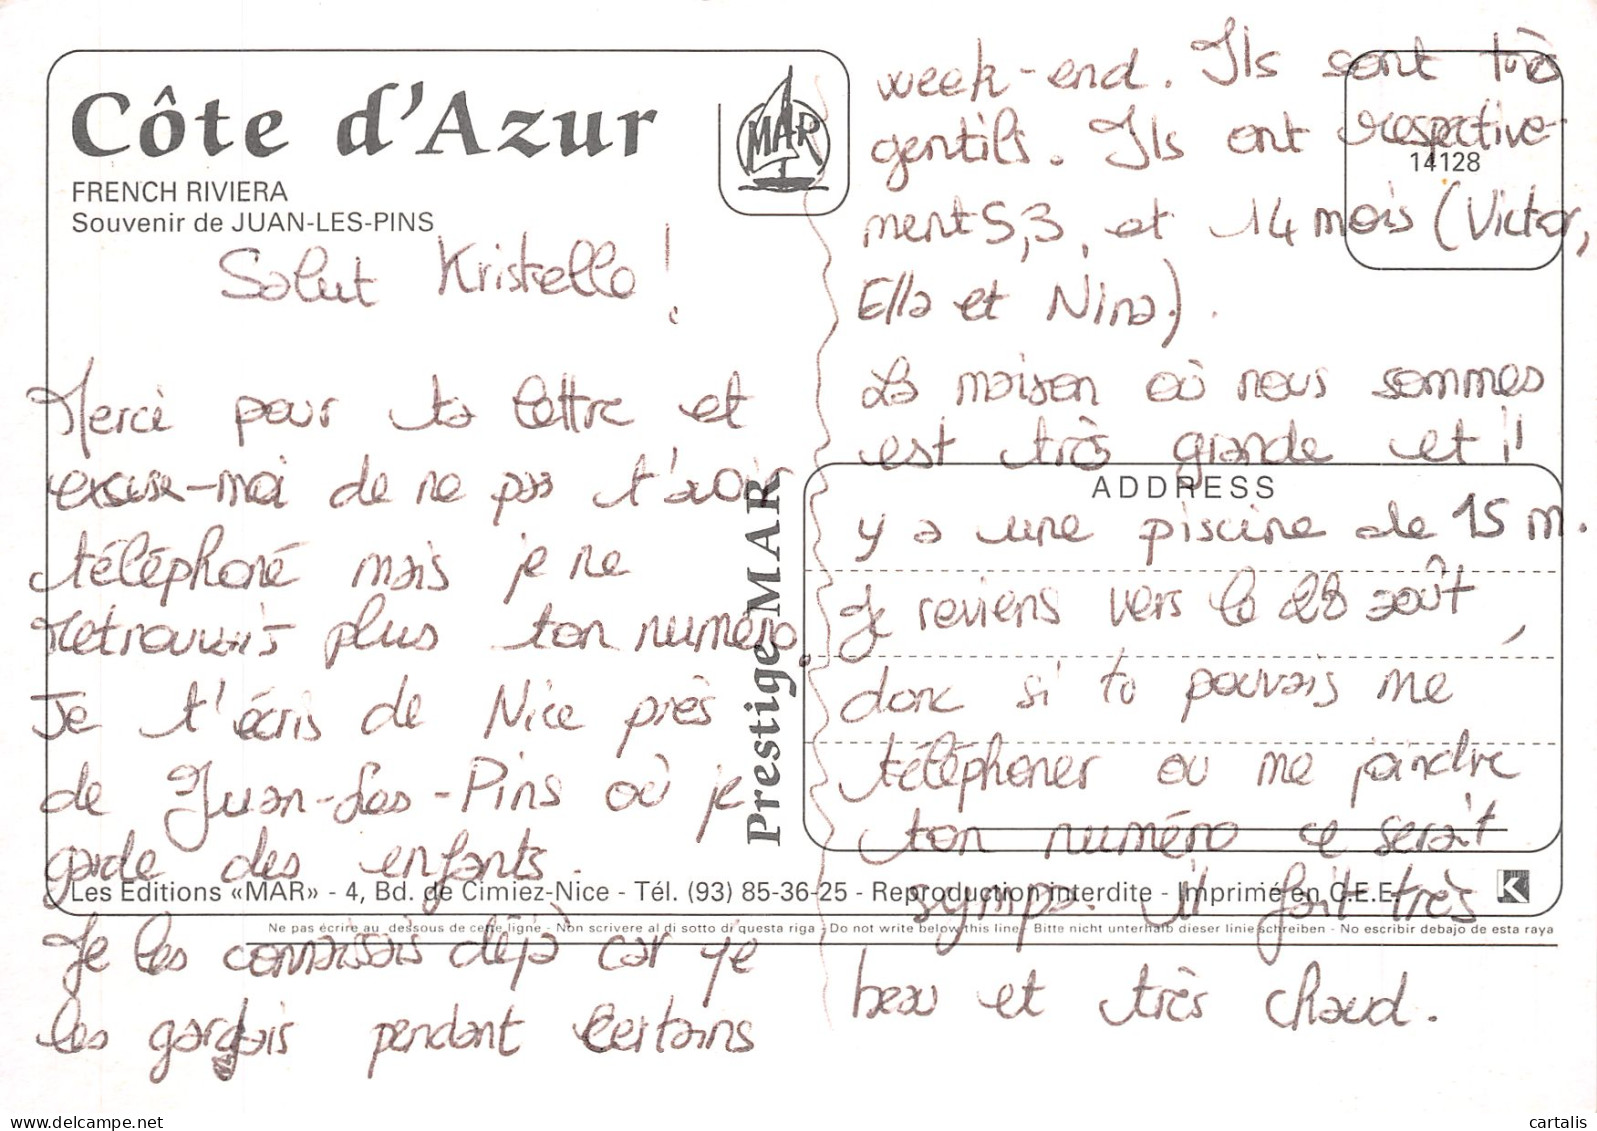 Côte d'Azur
FRENCH RIVIERA
Souvenir de JUAN-LES-PINS
MAR
14128
Salut Kristelle !
Merci pour ta lettre et
excuse-moi de ne pas t'avoir
téléphoné mais je ne
retrouvais plus ton numéro.
Je t'écris de Nice près
de Juan-Les-Pins où je
garde des enfants.
Je les connaissais déjà car je
les gardais pendant certains
week-end. Ils sont très
gentils. Ils ont respective-
ment 5, 3, et 14 mois (Victor,
Ella et Nina).
La maison où nous sommes
est très grande et il
y a une piscine de 15 m.
Je reviens vers le 28 août,
donc si tu pouvais me
téléphoner ou me joindre
ton numéro ce serait
sympa. Il fait très
beau et très chaud.
Prestige MAR
ADDRESS
Les Editions «MAR» - 4, Bd. de Cimiez-Nice - Tél. (93) 85-36-25 - Reproduction interdite - Imprimé en C.E.E.
K
Ne pas écrire au dessous de cette ligne - Non scrivere al di sotto di questa riga - Do not write below this line - Bitte nicht unterhalb dieser linie schreiben - No escribir debajo de esta raya
cartalis